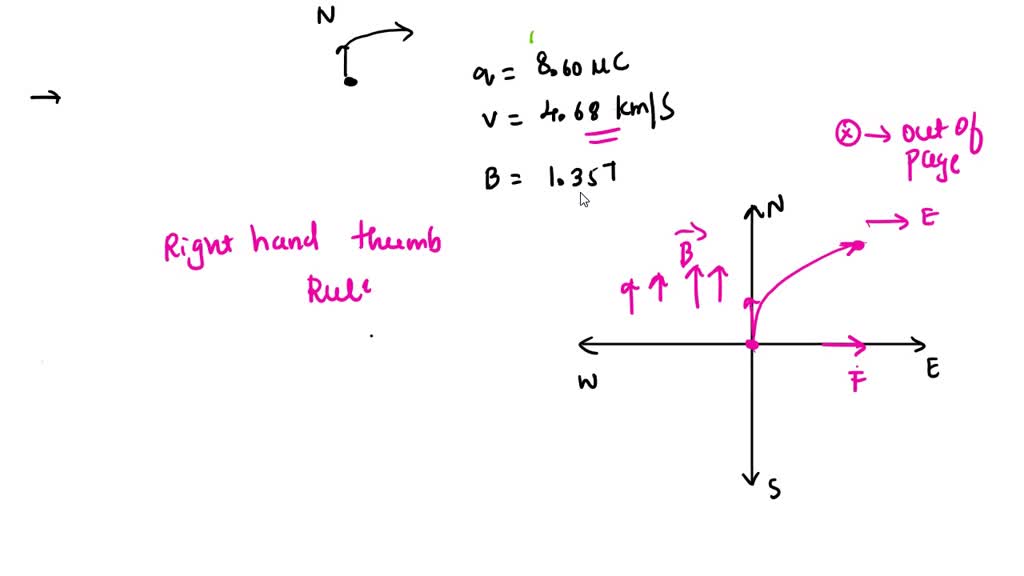 N
q = 8.60 μC
v = 4.68 km/s
B = 1.35T
ⓧ → out of
page
N
→ E
B
Right hand thumb
Rule
W
F
E
S